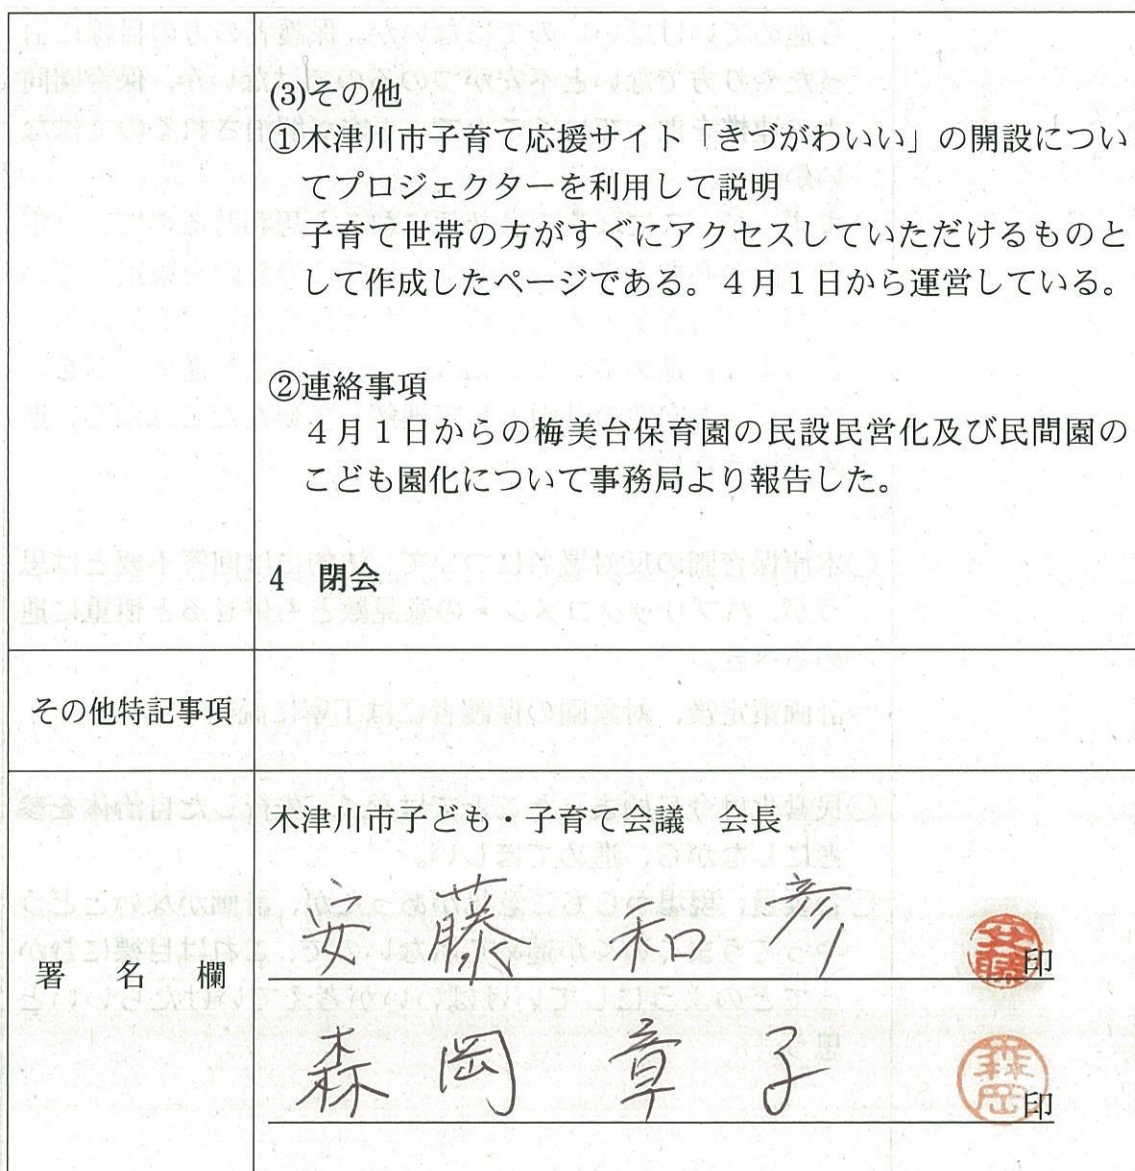 (3)その他
①木津川市子育て応援サイト「きづがわいい」の開設につい
てプロジェクターを利用して説明
子育て世帯の方がすぐにアクセスしていただけるものと
して作成したページである。４月１日から運営している。
②連絡事項
４月１日からの梅美台保育園の民設民営化及び民間園の
こども園化について事務局より報告した。
4　閉会
その他特記事項
木津川市子ども・子育て会議　会長
署　名　欄
安藤　和彦
安藤
印
森岡　章子
森岡
印